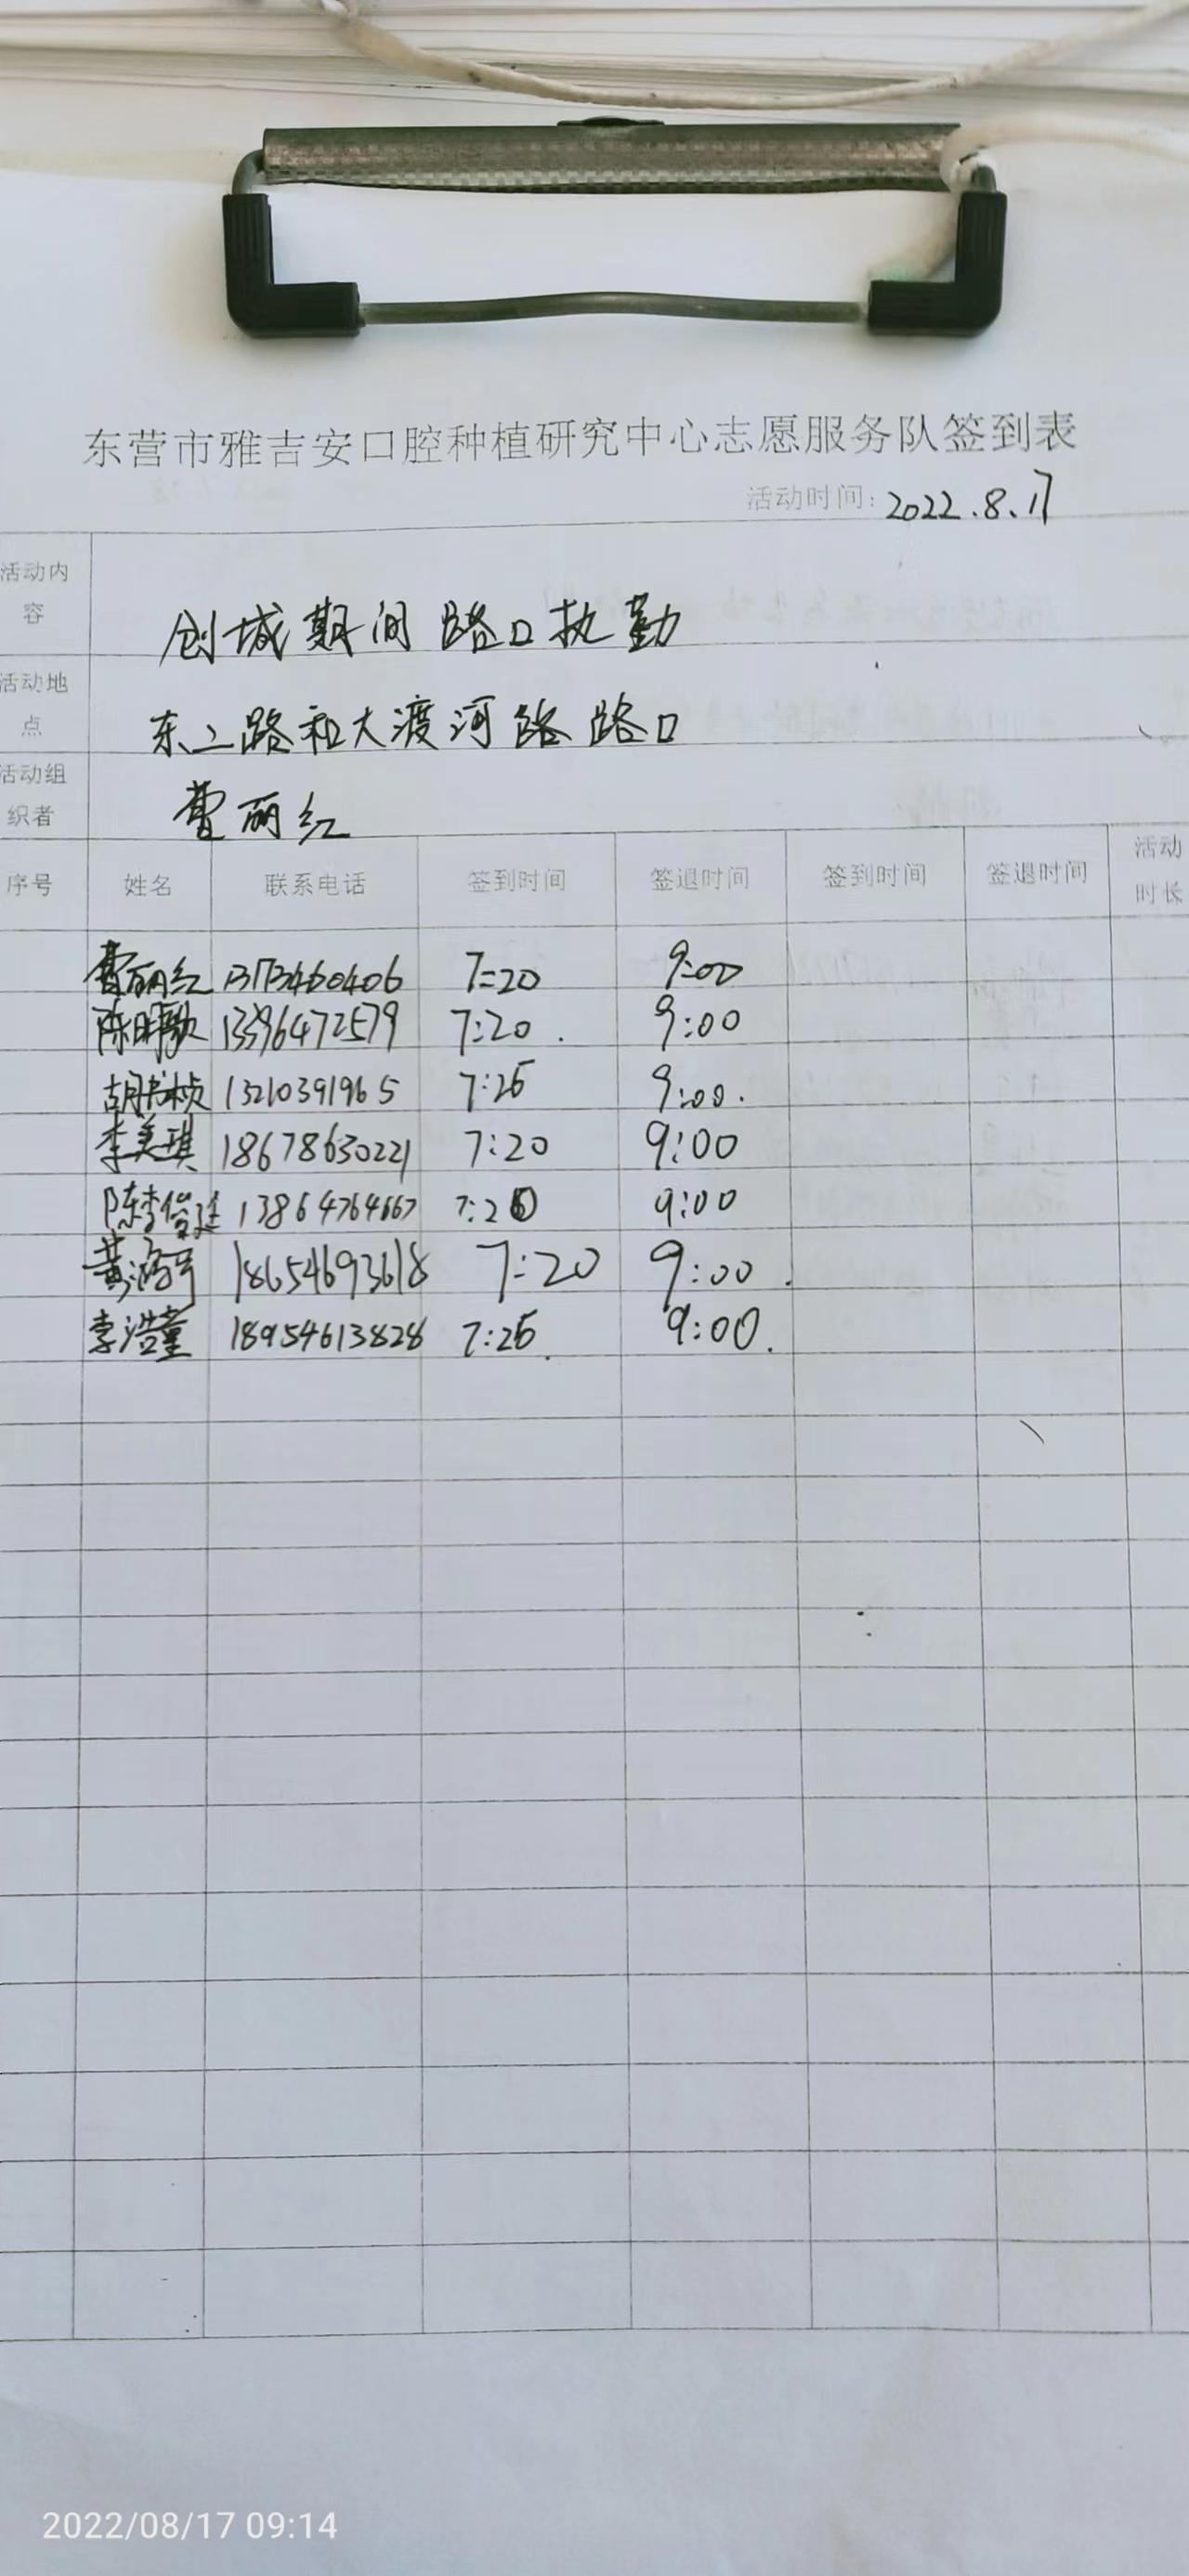 东营市雅吉安口腔种植研究中心志愿服务队签到表
活动时间: 2022.8.17
活动内容 创城期间路口执勤
活动地点 东二路和大渡河路路口
活动组织者 曹丽红
序号 姓名 联系电话 签到时间 签退时间 签到时间 签退时间 活动时长
曹丽红 13173460406 7:20 9:00
陈 13396472579 7:20 9:00
胡书桢 13210391965 7:25 9:00
李美琪 18678630221 7:20 9:00
陈李俊廷 13864764667 7:20 9:00
黄 18654693618 7:20 9:00
李浩童 18954613828 7:25 9:00
2022/08/17 09:14